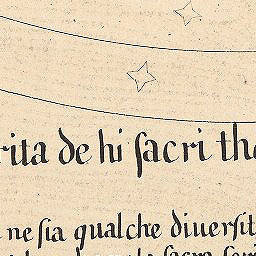 rita de hi sacri the
ne sia qualche diuersit